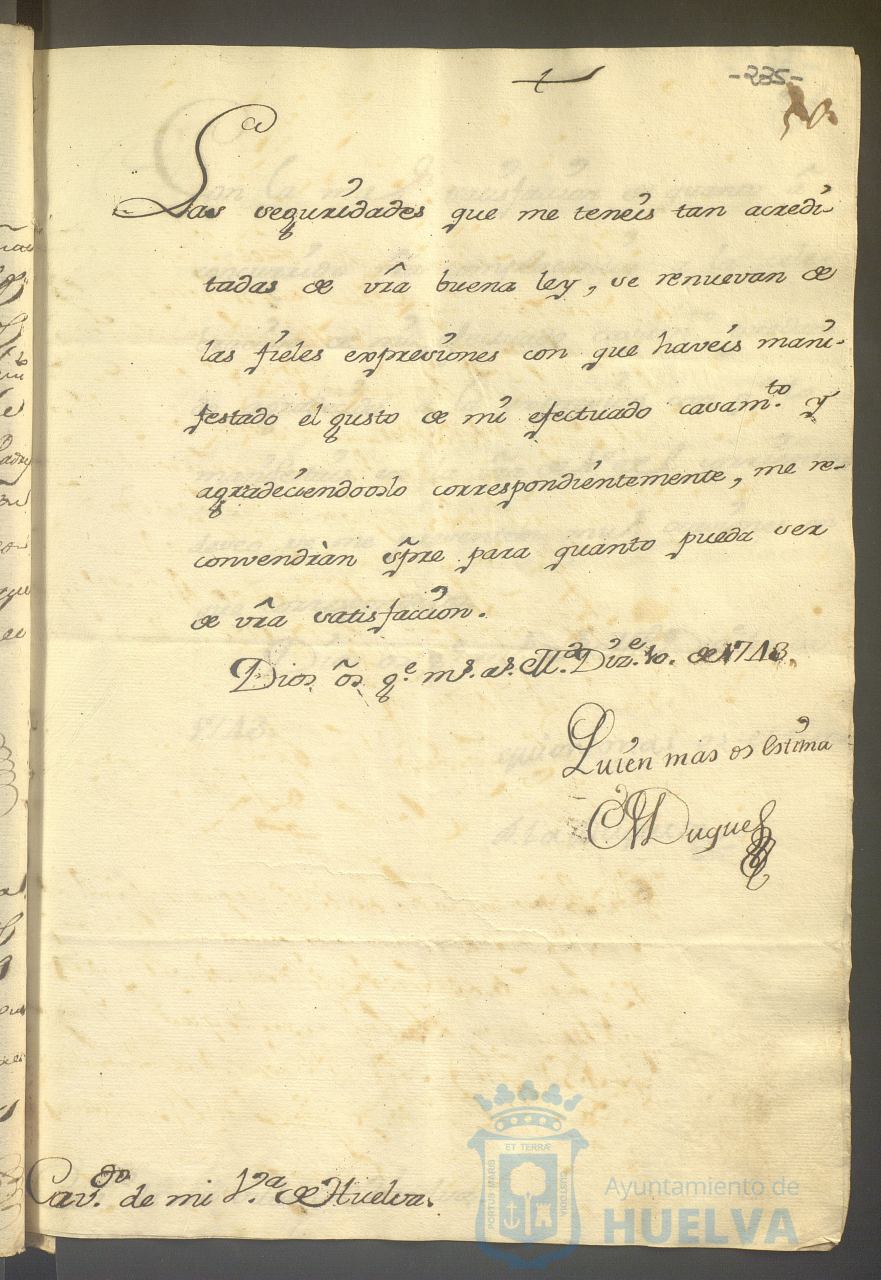 -235-
Las seguridades que me teneis tan acredi-
tadas de vr̃a buena ley, se renuevan de
las fieles expresiones con que haveis mani-
festado el gusto de mi efectuado casam.to y
agradeciendooslo correspondientemente, me re-
convendràn sp̃re para quanto pueda ser
de vr̃a satisfaccion.
Dios os g.e m.s a.s M.d Diz.e 10. de 1713.
Quien mas os estima
El Duque
Cav.do de mi V.a de Huelva.
PORTUS MARIS
ET TERRÆ
CUSTODIA
Ayuntamiento de
HUELVA